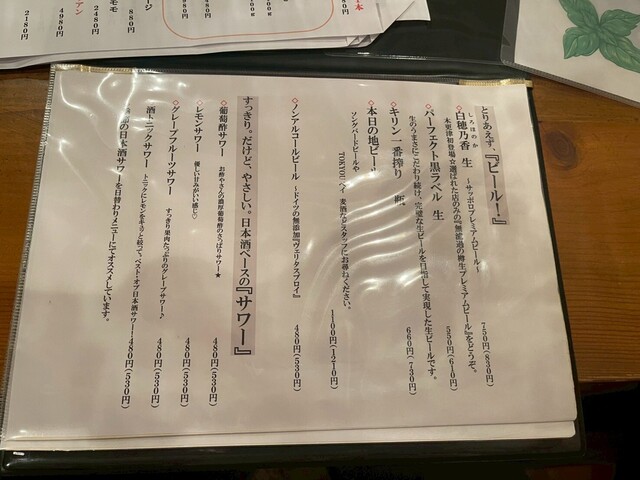 とりあえず、『ビール！』
しろほのか
◇白穂乃香 生 ～サッポロプレミアムビール～ 750円(830円)
木更津初登場☆選ばれた店のみの『無濾過の樽生プレミアムビール』をどうぞ。
◇パーフェクト黒ラベル 生 550円(610円)
生のうまさにこだわり続け、完璧な生ビールを目指して実現した生ビールです。
◇キリン一番搾り 瓶 660円(730円)
◇本日の地ビール 1100円(1210円)
ソングバードビールや TOKYO 麦酒など スタッフにお尋ねください。
◇ノンアルコールビール ～ドイツの無添加『ヴェリタスブロイ』 480円(530円)
すっきり。だけど、やさしい。日本酒ベースの『サワー』
◇葡萄酢サワー お酢やさんの濃厚葡萄酢のさっぱりサワー★ 480円(530円)
◇レモンサワー 優しい甘みがいい感じ♡ 480円(530円)
◇グレープフルーツサワー すっきり果肉たっぷりのグレープサワー♪ 480円(530円)
酒トニックサワー トニックにレモンをギュッと絞って、ベスト・オブ日本酒サワー！ 480円(530円)
の日本酒サワーを日替わりメニューにてオススメしています。
2180円
4980円
2480円
880円